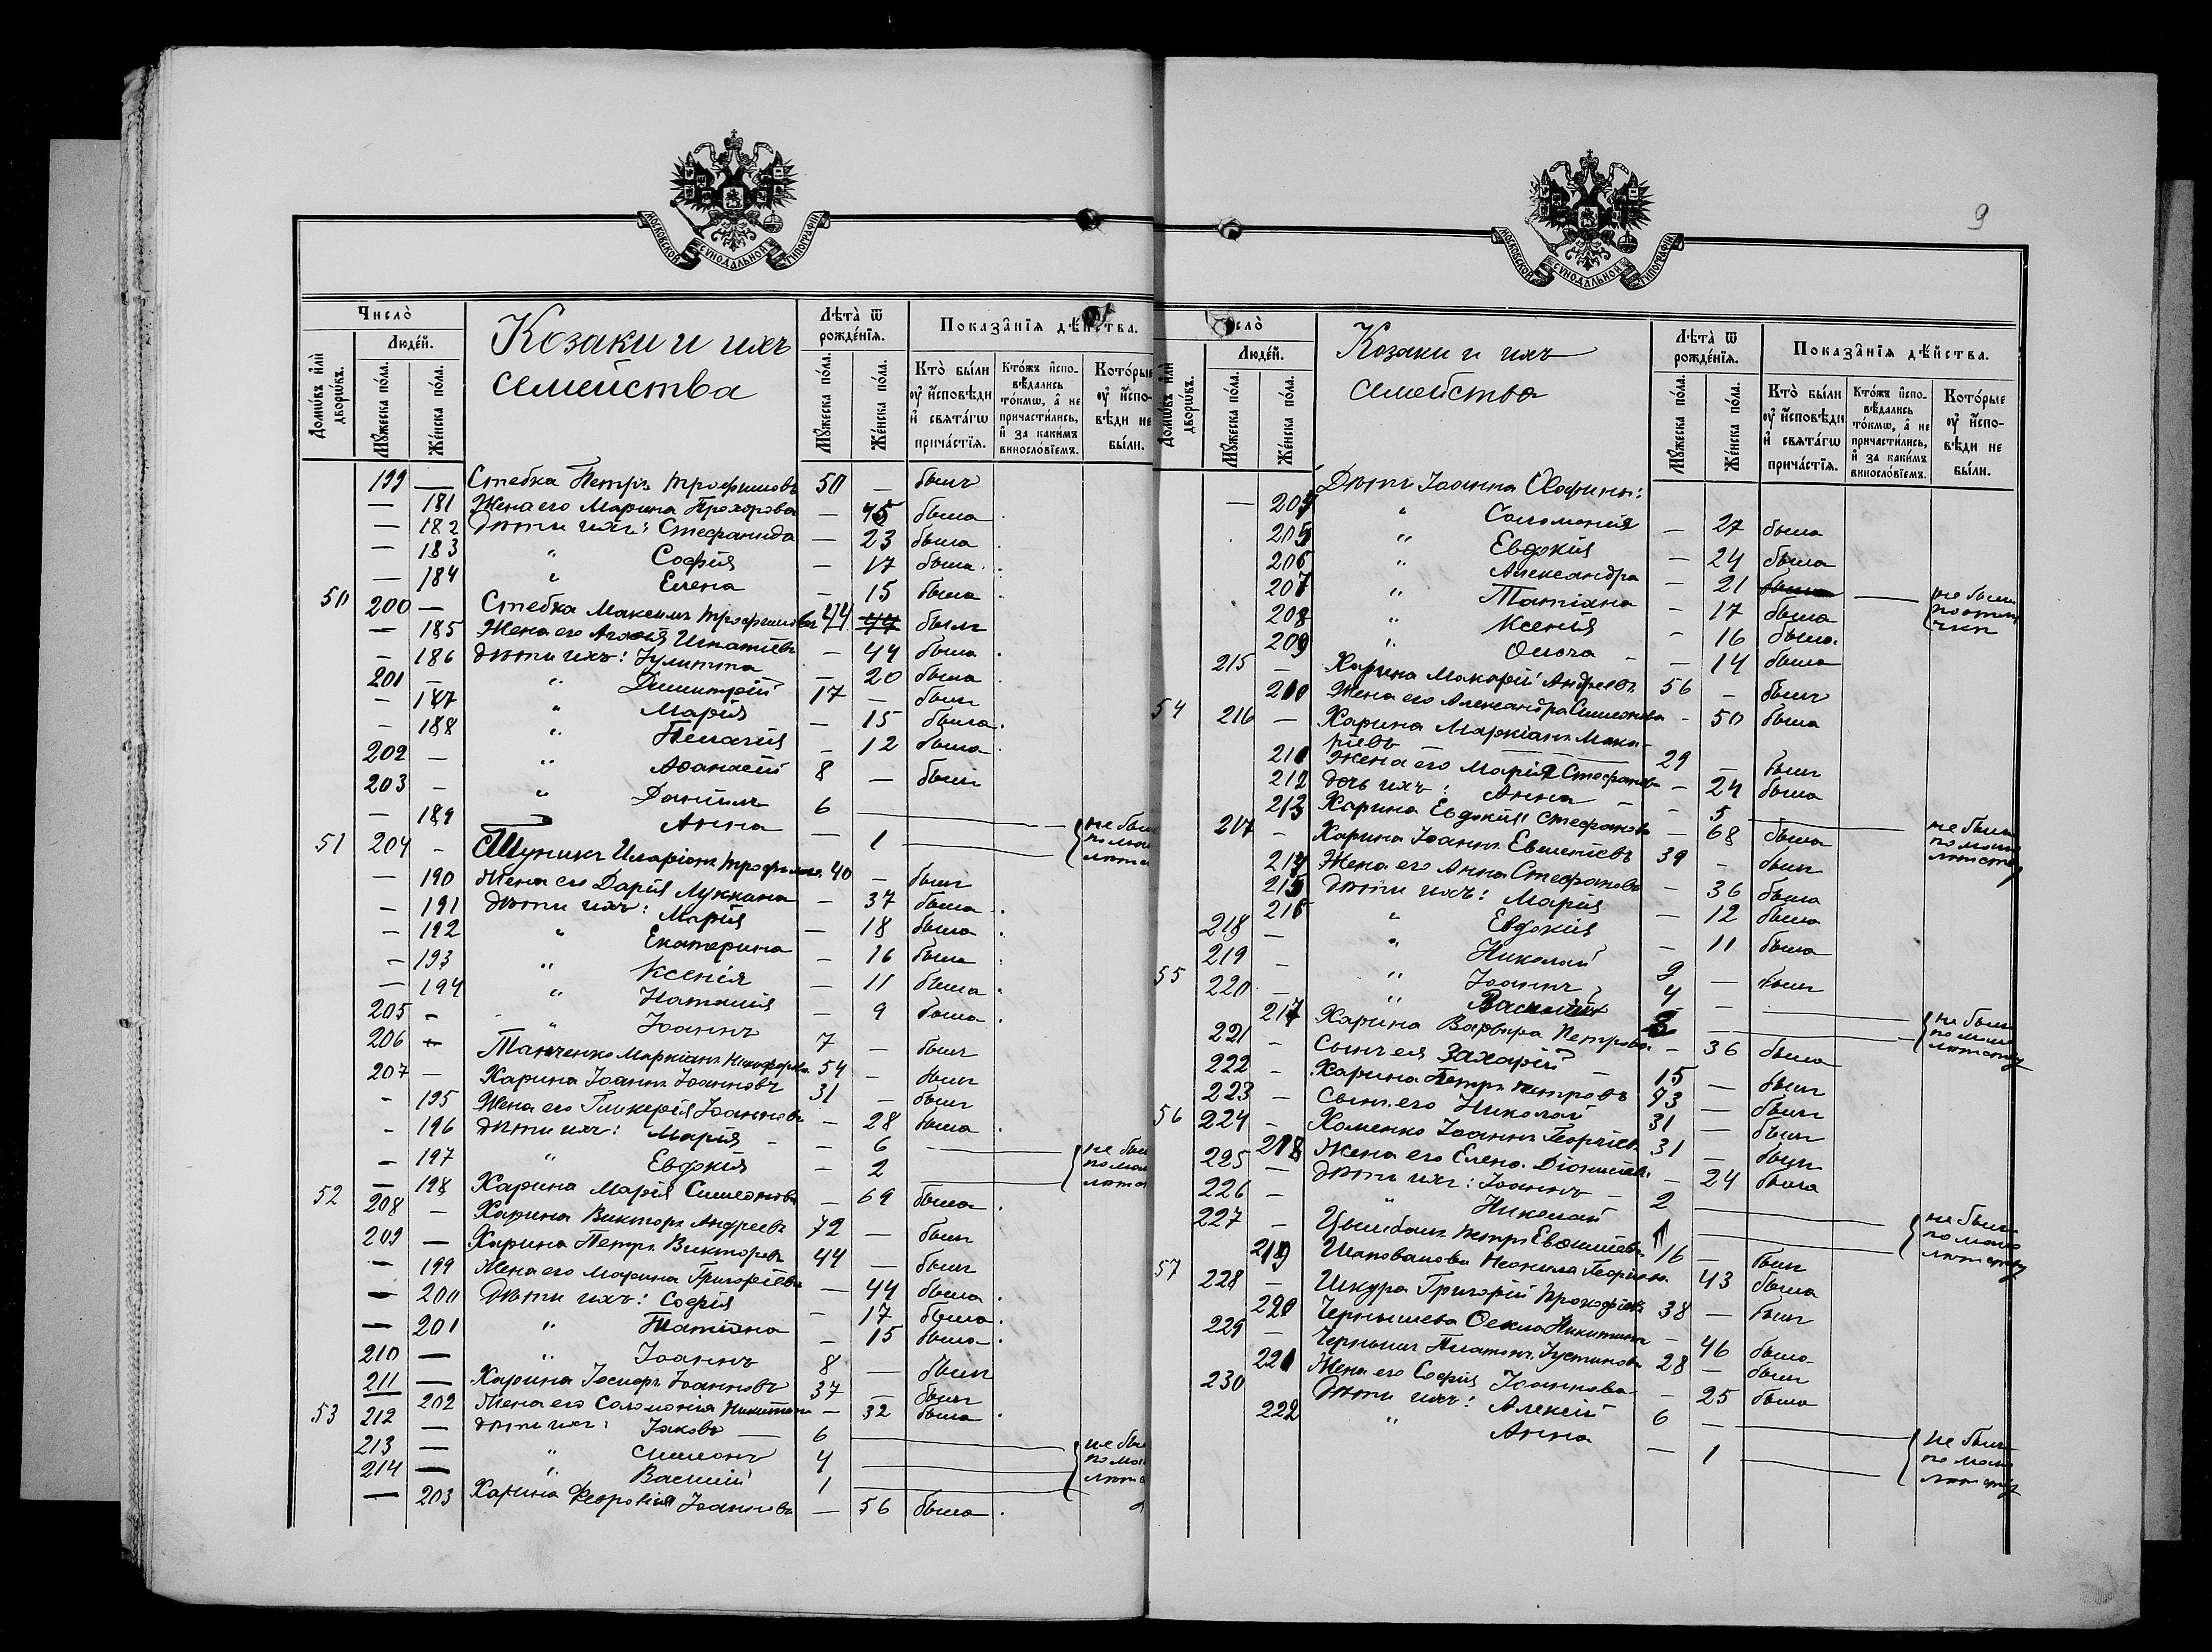 МОСКОВСКОЙ СУНОДАЛЬНОЙ ТИПОГРАФІИ
Число̀
Люде́й.
Домѡ́въ и҆лѝ дворѡ́въ.
Мꙋ́жеска по́ла.
Же́нска по́ла.
Козаки и ихъ
семейства
Лѣ́та ѿ рожде́нїѧ.
Мꙋ́жеска по́ла.
Же́нска по́ла.
Показа̑нїѧ дѣ́йства.
Кто̀ бы́ли оу҆ и҆сповѣди и҆ свѧта́гѡ прича́стїѧ.
Кто́жъ и҆спо-вѣ́дались то́кмѡ, а҆ не причасти́лись, и҆ за каки́мъ винослові́емъ.
Кото́рые оу҆ и҆спо-вѣди не бы́ли.
199 — Стебка Петръ Трофимовъ 50 — былъ
— 181 Жена его Марина Прохорова — 45 была
— 182 Дѣти ихъ: Стефанида — 23 была
— 183 " Софія — 17 была
— 184 " Елена — 15 была
50 200 — Стебка Максимъ Трофимовъ 44 былъ
— 185 Жена его Игнатіев — 44 была
— 186 Дѣти ихъ: Іулитта — 20 была
201 — " Димитрій 17 — былъ
— 187 " Марія — 15 была
— 188 " Пелагія — 12 была
202 — " Аѳанасій 8 — былъ
203 — " Даніилъ 6 —
— 189 " Анна — 1 не были по мало
51 204 — Шуликъ Иларіонъ Трофимов. 40 — былъ
— 190 Жена его Дарія Лукіана — 37 была
— 191 Дѣти ихъ: Марія — 18 была
— 192 " Екатерина — 16 была
— 193 " Ксенія — 11 была
— 194 " Наталія — 9 была
205 — " Іоаннъ 7 — былъ
206 — Танченко Маркіанъ Никифоров. 54 — былъ
207 — Харина Іоаннъ Іоанновъ 31 — былъ
— 195 Жена его Гликерія Іоаннова — 28 была
— 196 Дѣти ихъ: Марія — 6
— 197 " Евдокія — 2
— 198 Харина Марія Симеонова — 69 была
52 208 — Харина Викторъ Андреевъ 72 — былъ
209 — Харина Петръ Викторов 44 — былъ
— 199 Жена его Марина Григоріева — 44 была
— 200 Дѣти ихъ: Софія — 17 была
— 201 " Татіана — 15 была
210 — " Іоаннъ 8 — былъ
211 — Харина Іосифъ Іоанновъ 37 — былъ
202 Жена его Соломонія Никитина — 32 была
53 212 — Дѣти ихъ: Іаковъ 6
213 — " Симеонъ 4
214 — " Василій 1
— 203 Харина Іоаннова — 56 была
9
Число̀
Люде́й.
Домѡ́въ и҆лѝ дворѡ́въ.
Мꙋ́жеска по́ла.
Же́нска по́ла.
Козаки и ихъ
семейства
Лѣ́та ѿ рожде́нїѧ.
Мꙋ́жеска по́ла.
Же́нска по́ла.
Показа̑нїѧ дѣ́йства.
Кто̀ бы́ли оу҆ и҆сповѣди и҆ свѧта́гѡ прича́стїѧ.
Кто́жъ и҆спо-вѣ́дались то́кмѡ, а҆ не причасти́лись, и҆ за каки́мъ винослові́емъ.
Кото́рые оу҆ и҆спо-вѣди не бы́ли.
Дѣти Іоанна
— 204 " Соломонія — 27 была
205 " Евдокія — 24 была
206 " Александра — 21 не была
207 " Татіана — 17 была
208 " Ксенія — 16 была
209 " Ольга — 14 была
215 — Харина Макарій Андреевъ 56 — былъ
210 Жена его Александра Симеонова — 50 была
54 216 — Харина Маркіанъ Мака-
ріевъ 29 — былъ
211 Жена его Марія Стефанова — 24 была
212 Дочь ихъ: Анна — 5 не была по мало лѣтству
213 Харина Евдокія Стефанова — 68 была
217 — Харина Іоаннъ 39 — былъ
214 Жена его Анна Стефанова — 36 была
215 Дѣти ихъ: Марія — 12 была
216 " Евдокія — 11 была
218 — " Николай 9 — былъ
219 — " Іоаннъ 4 —
55 220 — " Василій
217 Харина Варвара Петрова — 36 была
221 — Сынъ ея Захарій 15 — былъ
222 — Харина Петръ Петровъ 73 — былъ
223 — Сынъ его Николай 31 — былъ
56 224 — Хоменко Іоаннъ Георгіев. 31 — былъ
218 Жена его Елена Діонисіева — 24 была
225 — Дѣти ихъ: Іоаннъ 2
226 — " Николай 1 не были по мало лѣтству
227 — Цымбалъ Петръ 16 — былъ
219 Шаповалова Неонила Георгіева 43 была
57 228 — Шкура Григорій Прокофіевъ 38 — былъ
220 Чернышева Ѳекла Никитина — 46 была
229 — Чернышъ Платонъ Іустиновъ 28 — былъ
221 Жена его Софія Іоаннова — 25 была
230 Дѣти ихъ: Алексій 6 —
222 " Анна — 1 не были по мало лѣтству